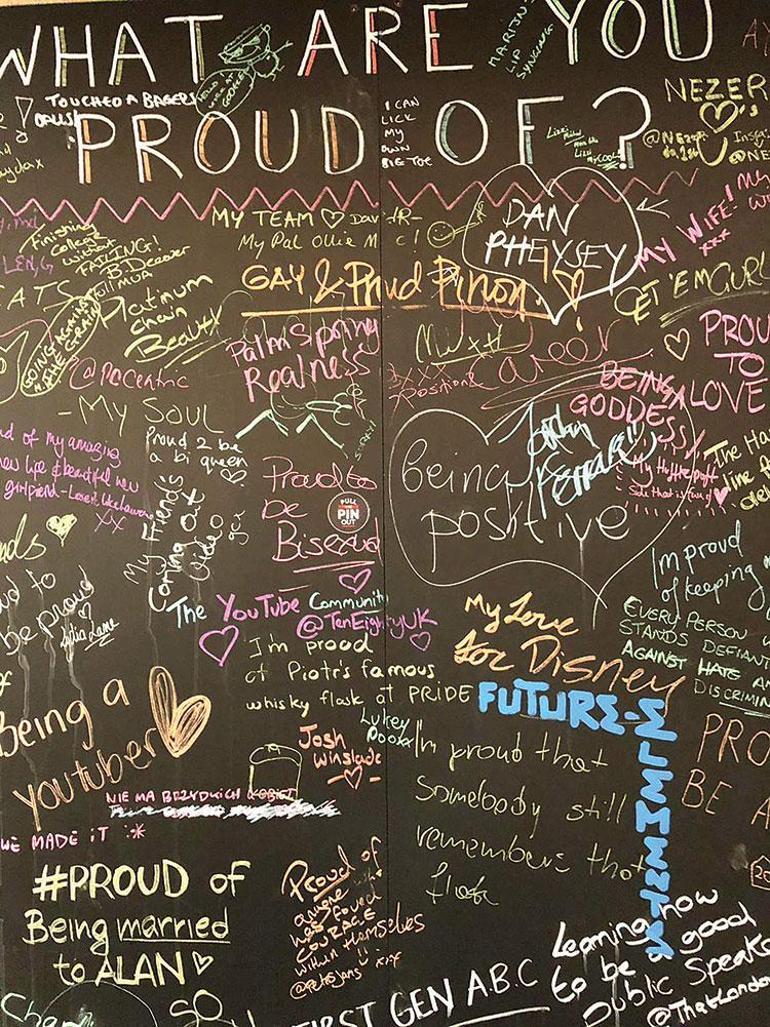 WHAT ARE YOU
PROUD OF?
MARIJN'S
LIP
SYNCING
TOUCHED A BAGERS
I CAN
LICK
MY
OWN
BIG TOE
NEZER
MY TEAM ♡
My Pal Ollie
DAN
PHEYSEY
MY WIFE!
xxx
GET 'EM GURL
Finishing
College
without
FAILING!
B. Deaver
MUA
GOING AGAINST
THE GRAIN
Platinum
Chain
Beauty
GAY & Proud
Palm Spring
Realness
@POCentric
career
PROU
TO
LOVE
BEING A
GODDESS
-MY SOUL
d of my amazing
new life & beautiful new
girlfriend
xx
Proud 2 be
a bi queen
♡
My Friend's
Coming Out
Video
Proud to
be
Bisexual
♡
PULL
PIN
OUT
Being
positive
My Hufflepuff
Side that is
I'm proud
of keeping
nds ♡
be proud
The YouTube Community
@TenEightyUK
I'm proud
of Piotr's famous
whisky flask at PRIDE
My Love
for Disney
EVERY PERSON
STANDS DEFIANT
AGAINST HATE AN
DISCRIMIN
FUTURE-ELEMENTS
Being a
youtuber
Josh
Winslade
Lukey
I'm proud that
somebody still
remembers that
flask
PRO
BE A
NIE MA BRZYDKICH KOBIET
WE MADE iT :*
#PROUD OF
Being married
to ALAN ♡
Proud of
anyone who
has found
COURAGE
within themselves
xxx
Learning how
to be a good
public Speake
@ThatLondon
FIRST GEN A.B.C
SO